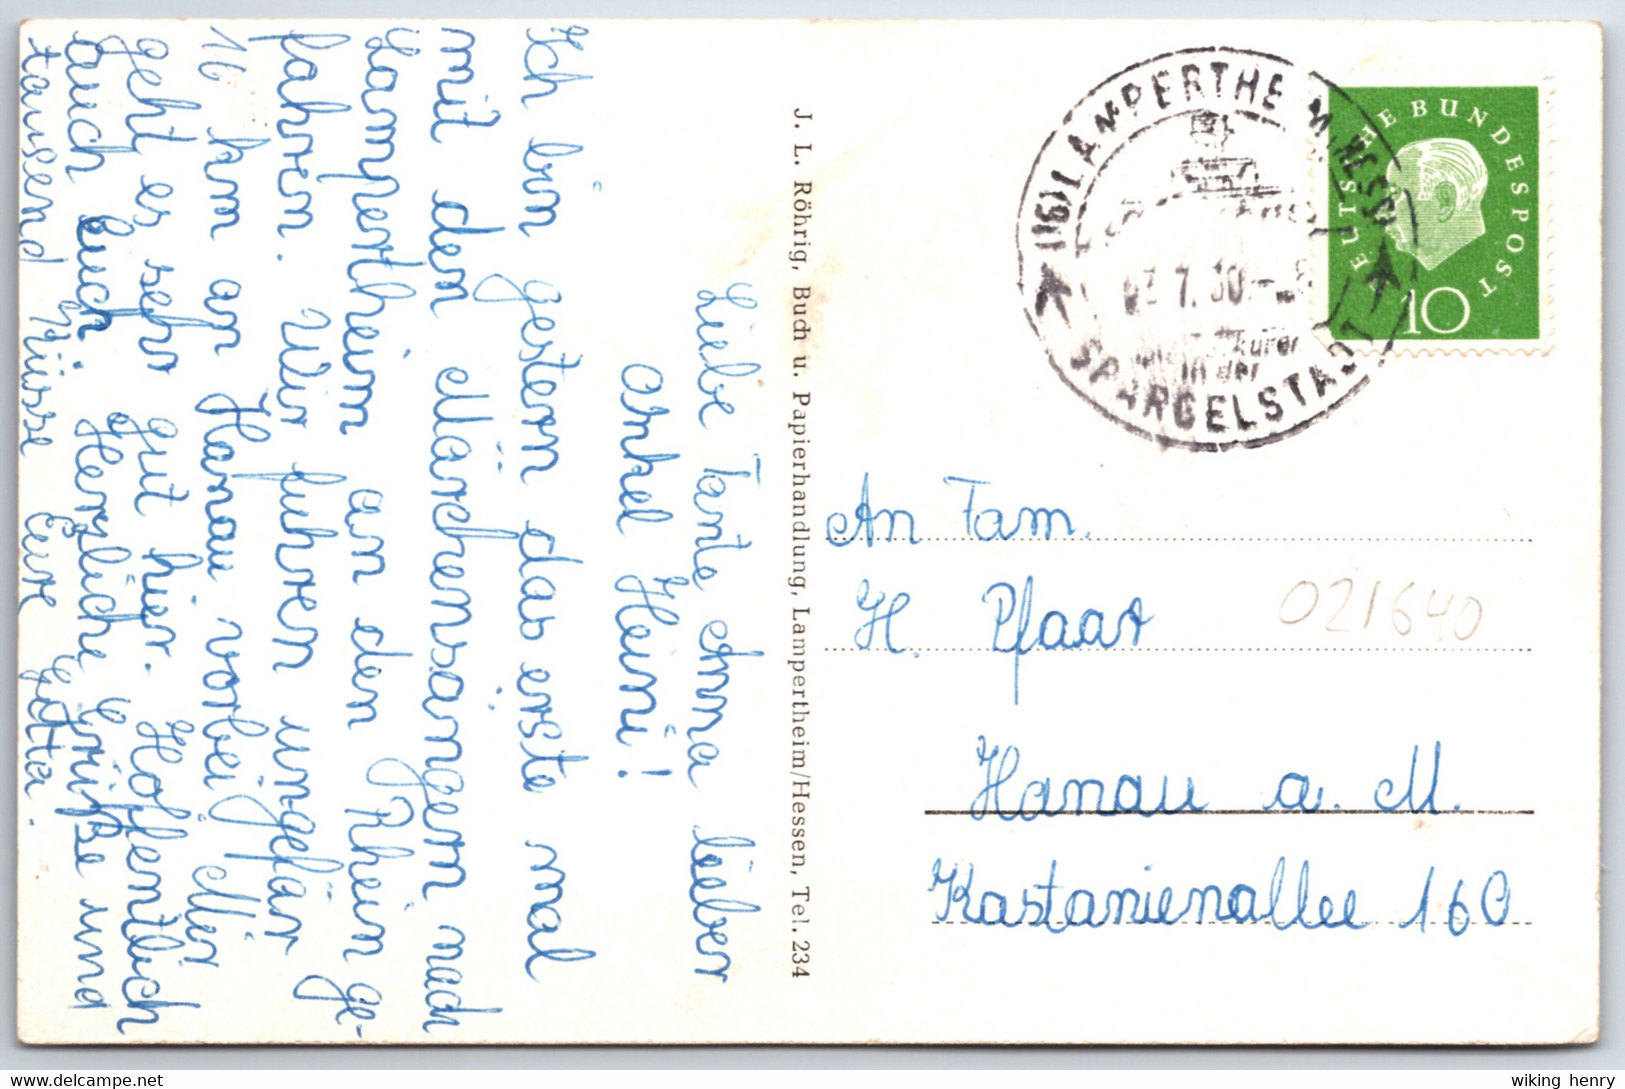 Liebe Tante Anna lieber
Onkel Heini!
Ich bin gestern das erste mal
mit den Märchensängern nach
Lampertheim an den Rhein ge-
fahren. Wir fuhren ungefär
16 km an Hanau vorbei. Mir
geht es sehr gut hier. Hoffentlich
auch Euch. Herzliche Grüße und
tausend Küsse Eure Jutta.
J. L. Röhrig, Buch u. Papierhandlung, Lampertheim/Hessen, Tel. 234
(16) LAMPERTHEIM (HESS)
7.60.-
in der
SPARGELSTADT
DEUTSCHE BUNDESPOST
10
An Fam.
H. Pfaar
021640
Hanau a. M.
Kastanienallee 160
wiking henry